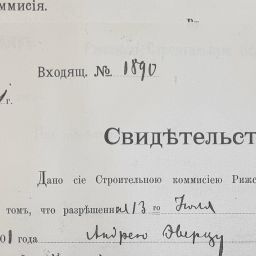 ммисія.
Входящ. № 1890
г.
Свидѣтельст
Дано сіе Строительною коммисіею Риже
томъ, что разрѣшенная 13 го Іюля
01 года Андрею Эверцу